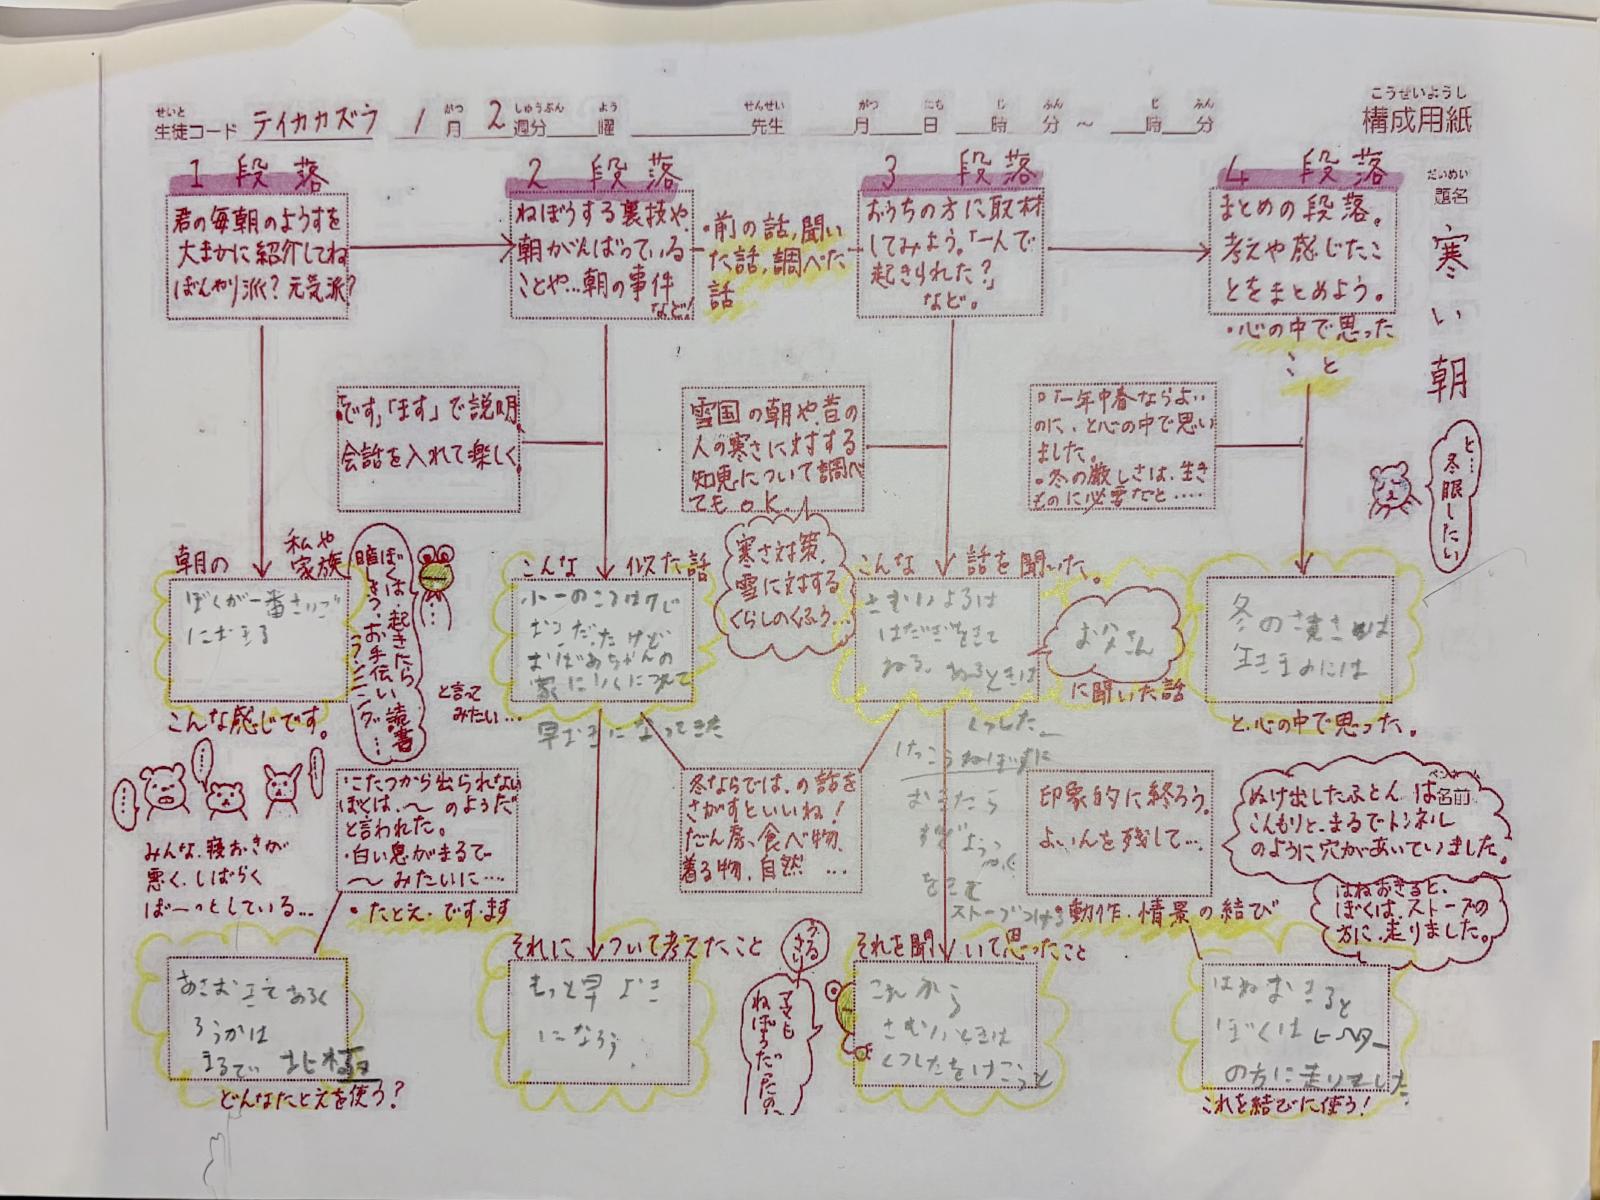 こうせいようし
構成用紙
せいと がつ しゅうぶん よう せんせい がつ にち じ ふん じ ふん
生徒コード テイカカズラ 1月 2週分 曜 先生 月 日 時 分 ～ 時 分
だいめい
題名
寒い朝
1 段落
君の毎朝のようすを
大まかに紹介してね
ぼんやり派？元気派？
2 段落
ねぼうする裏技や、
朝がんばっている
ことや…朝の事件
など！
・前の話，聞い
た話，調べた
話
3 段落
おうちの方に取材
してみよう。「一人で
起きられた？」
など。
4 段落
まとめの段落。
考えや感じたこ
とをまとめよう。
・心の中で思った
こと
「です」「ます」で説明。
会話を入れて楽しく。
雪国の朝や、昔の
人の寒さに対する
知恵について調べ
てもOK！
。「一年中春ならよい
のに、と心の中で思い
ました。
。冬の厳しさは、生き
ものに必要だと……
と…
冬眠したい
朝の
私や
家族
ぼくが一番さいご
におきる
こんな感じです。
ぼくは、起きたら
読書
お手伝い
ランニング…
と言って
みたい…
みんな、寝おきが
悪く、しばらく
ぼーっとしている…
こんな 似た話
小一のころは
だったけど
おばあちゃんの
家に行くにつれて
早おきになってきた
寒さ対策、
雪に対する
くらしのくふう…
こんな 話を聞いた。
さむいよるは
はだぎをきて
ねる。ねるときは
くつした
けっこうねぼすけ
おきたら
ストーブつける
お父さん
に聞いた話
冬の寒さは
生きものには
と、心の中で思った。
・こたつから出られない
ぼくは、～のようだ
と言われた。
・白い息がまるで
～みたいに……
・たとえ・です・ます
冬ならでは、の話を
さがすといいね！
だん房、食べ物、
着る物、自然…
印象的に終ろう。
よいんを残して…
・動作・情景の結び
ペンネーム
名前
ぬけ出したふとんは
こんもりと、まるでトンネル
のように穴があいていました。
はねおきると、
ぼくは、ストーブの
方に、走りました。
あさおきてあるく
ろうかは
まるで 北極
どんなたとえを使う？
それに ついて考えたこと
もっと早おき
になろう
ママも
ねぼうだったの
それを聞いて思ったこと
これから
さむいときは
くつしたをはこうと
はねおきると
ぼくはヒーター
の方に走りました
これを結びに使う！